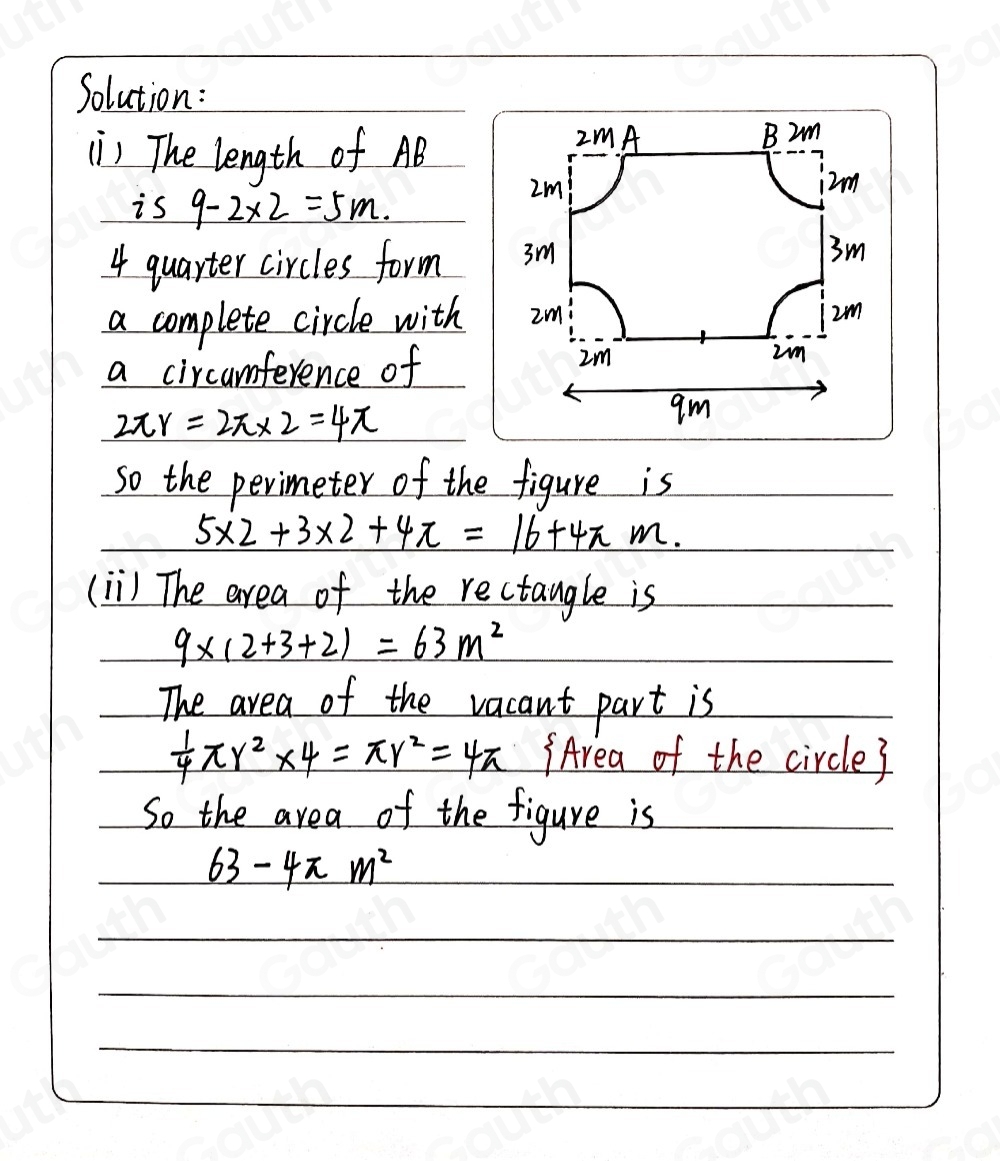 Solution:
(i) The length of AB
is 9-2×2=5m.
4 quarter circles form
a complete circle with
a circumference of
2πr=2π×2=4π
so the perimeter of the figure is
5×2+3×2+4π = 16+4π m.
(ii) The area of the rectangle is
9×(2+3+2) = 63m²
The area of the vacant part is
1/4πr²×4=πr²=4π {Area of the circle}
So the area of the figure is
63-4π m²
2m A B 2m
2m 2m
3m 3m
2m 2m
2m 2m
9m
Gauth